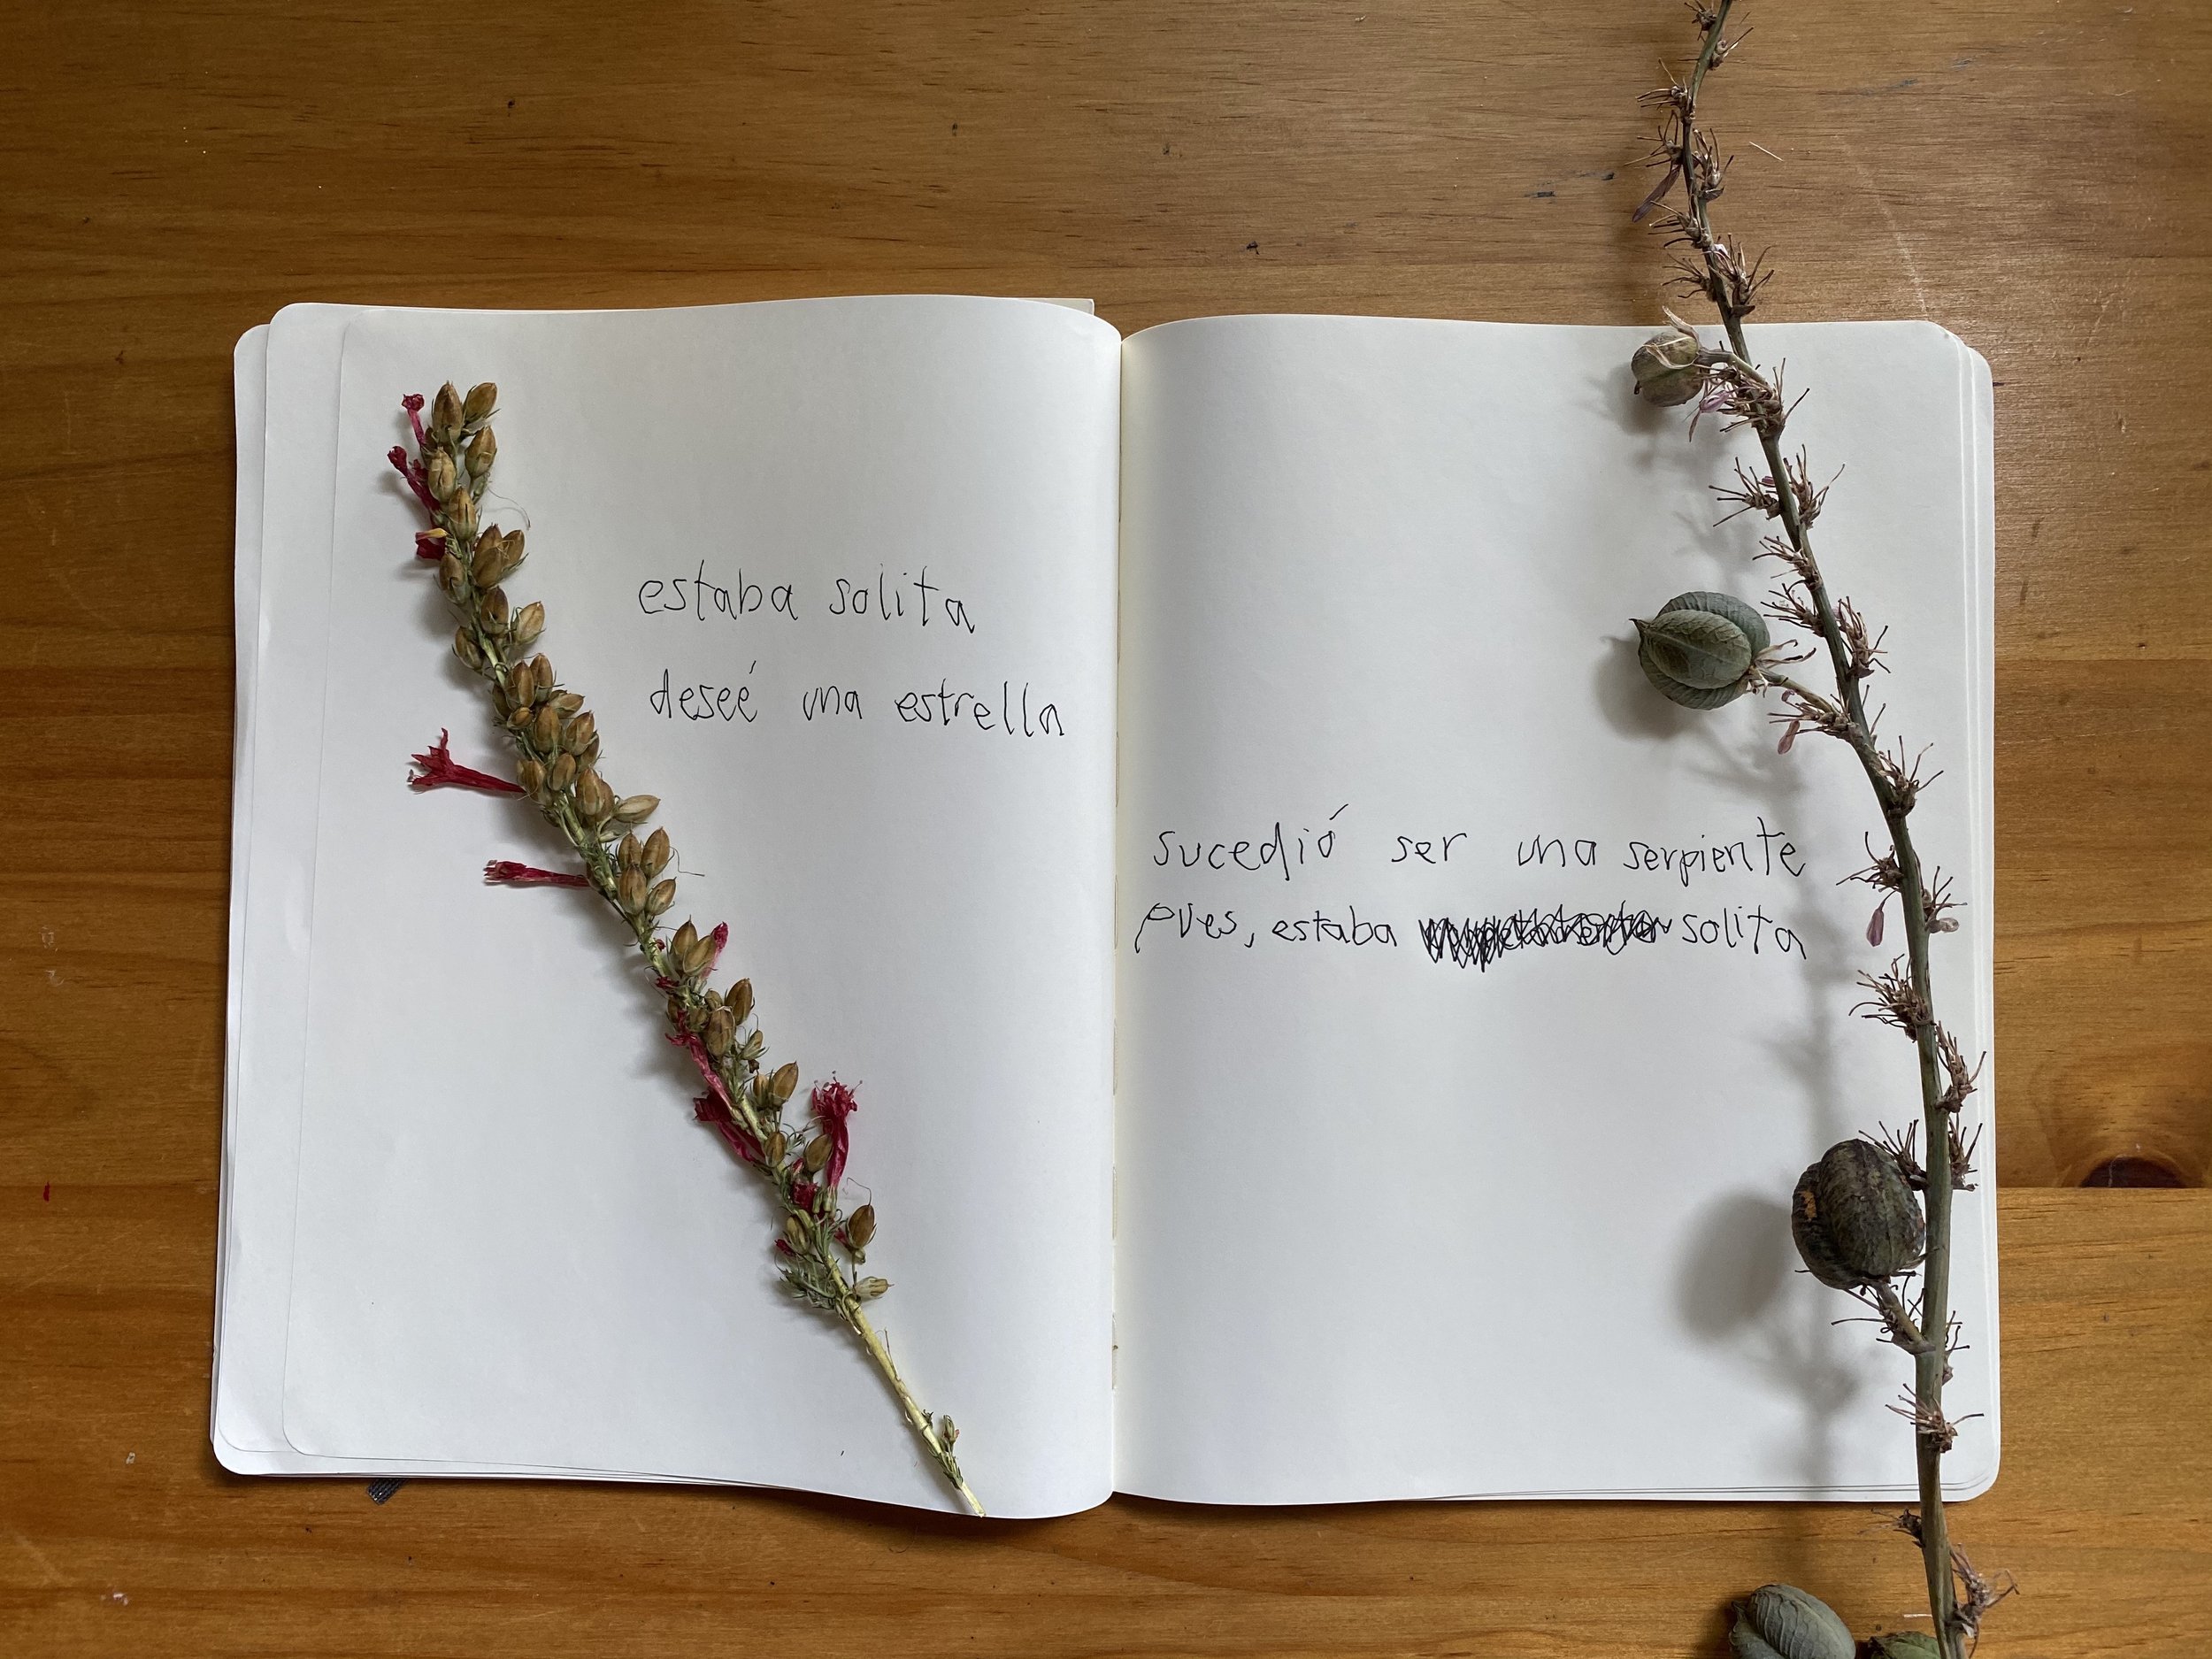 estaba solita
deseé una estrella
sucedió ser una serpiente
pues, estaba solita